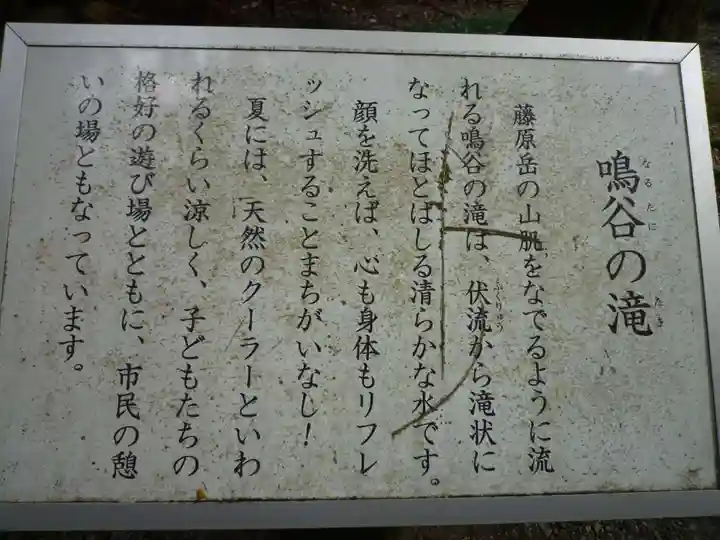 鳴谷の滝
なるたに
たき
藤原岳の山肌をなでるように流
れる鳴谷の滝は、伏流から滝状に
ふくりゅう
なってほとばしる清らかな水です。
顔を洗えば、心も身体もリフレ
ッシュすることまちがいなし！
夏には、天然のクーラーといわ
れるくらい涼しく、子どもたちの
格好の遊び場とともに、市民の憩
いの場ともなっています。